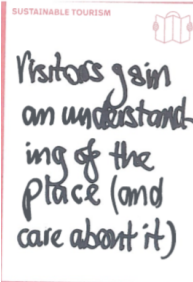 SUSTAINABLE TOURISM
Visitors gain
an understand-
ing of the
place (and
care about it)